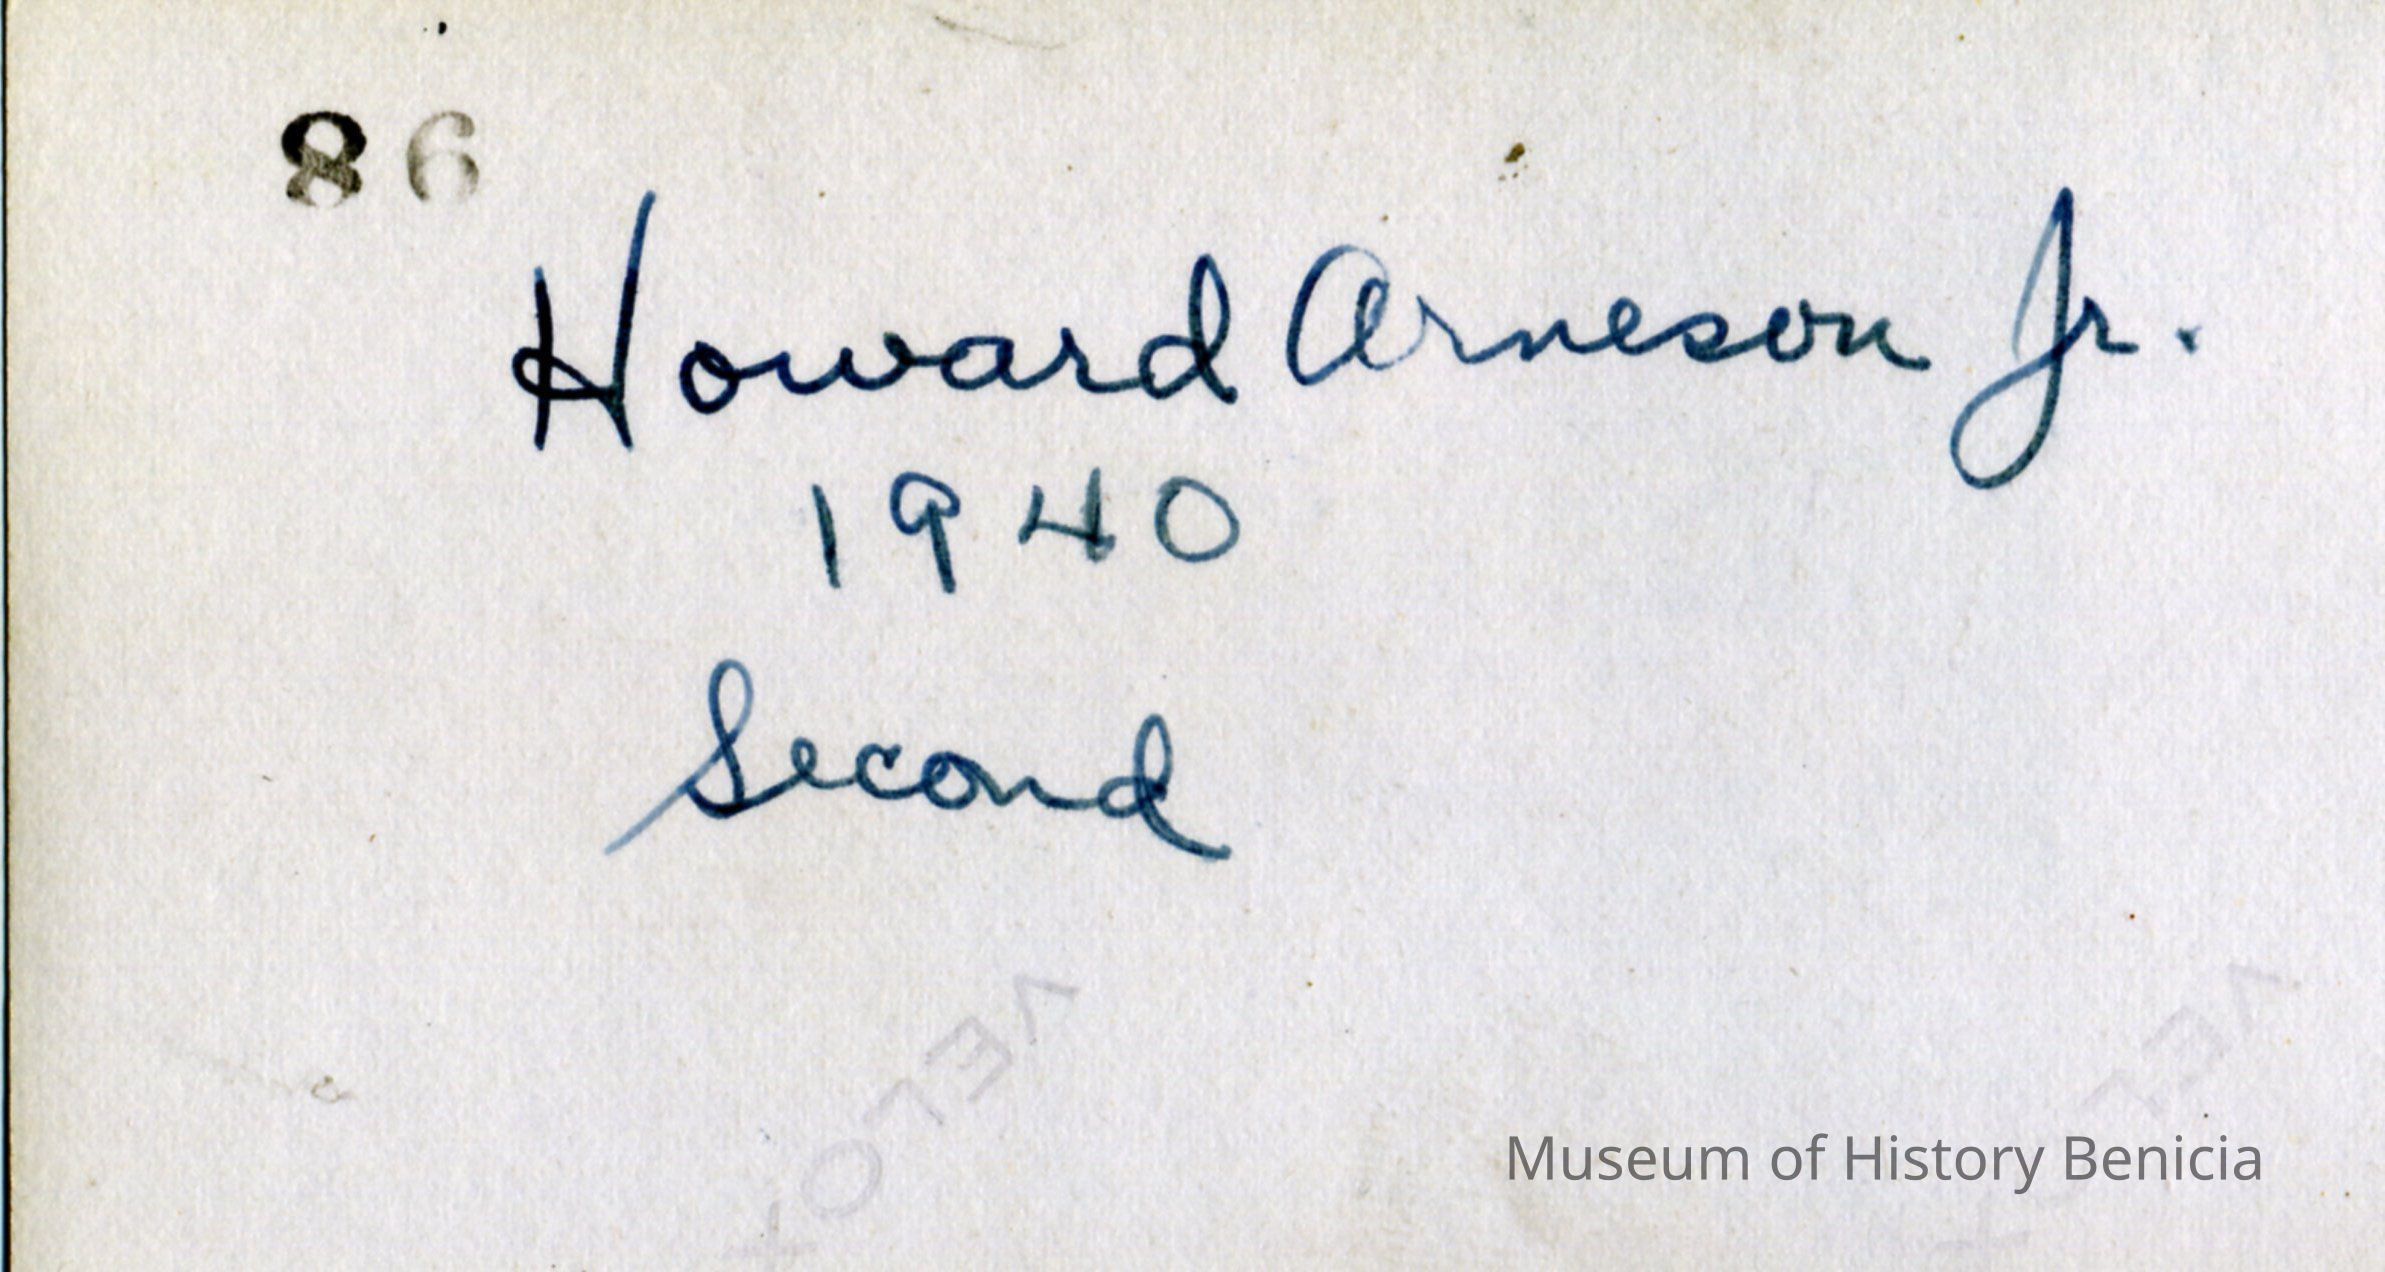 86
Howard Arneson Jr.
1940
Second
VELOX
Museum of History Benicia